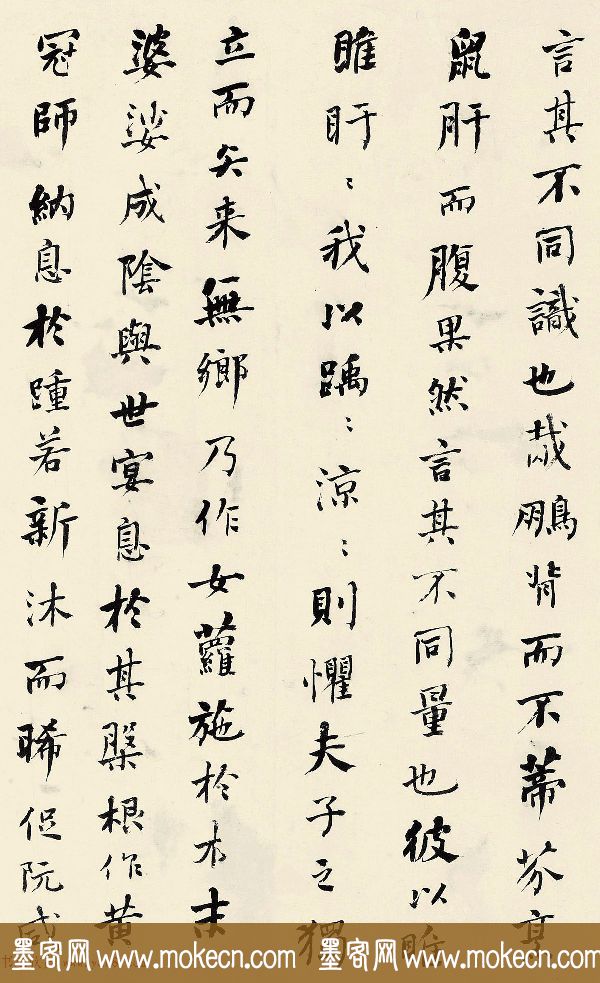 言其不同識也哉鵬背而不蒂芥
鼠肝而腹果然言其不同量也彼以
睢盱：我以踽：涼：則懼夫子之獨
立而矢来無鄉乃作女蘿施於木末
婆娑成陰與世宴息於其槃根作黃
冠師納息於踵若新沐而晞促阮咸
墨客网 www.mokecn.com 墨客网 www.mokecn.com